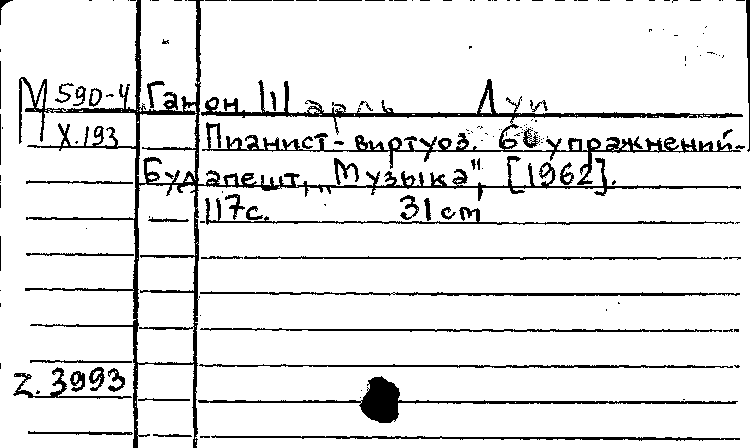 М 590-4 Ганон, Шарль Луи
X.193 Пианист-виртуоз. 60 упражнений.-
Будапешт, „Музыка", [1962].
117с. 31 cm
Z. 3993